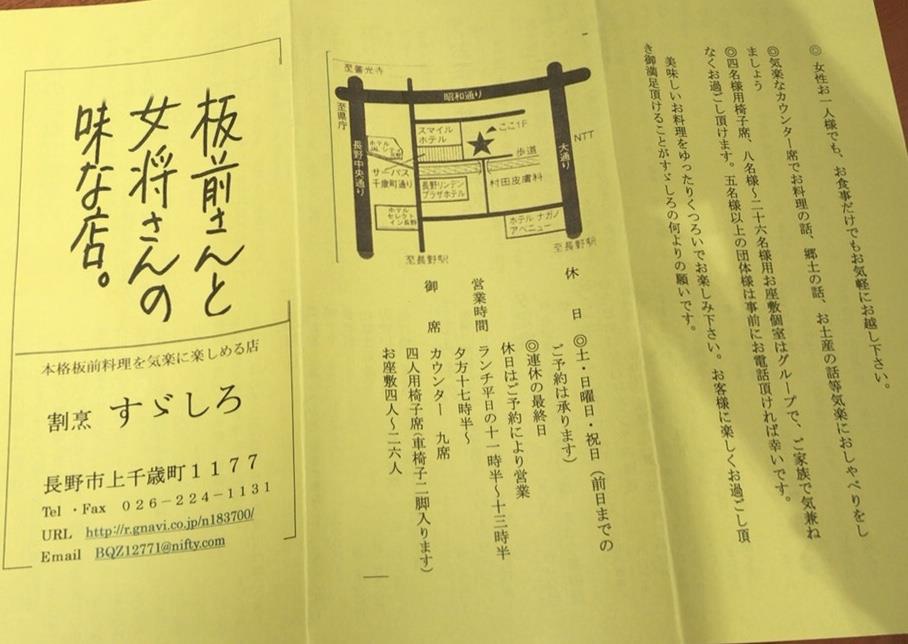 ◎ 女性お一人様でも、お食事だけでもお気軽にお越し下さい。
◎気楽なカウンター席でお料理の話、郷土の話、お土産の話等気楽におしゃべりをし
ましょう
◎四名様用椅子席、八名様～二十六名様用お座敷個室はグループで、ご家族で気兼ね
なくお過ごし頂けます。五名様以上の団体様は事前にお電話頂ければ幸いです。
美味しいお料理をゆったりくつろいでお楽しみ下さい。お客様に楽しくお過ごし頂
き御満足頂けることがすゞしろの何よりの願いです。
至善光寺
至県庁
昭和通り
NTT
長野中央通り
大通り
スマイル
ホテル
ここ1F
歩道
サーパス
千歳町通り
長野リンデン
プラザホテル
村田皮膚科
ホテル
セレクト
イン長野
ホテル ナガノ
アベニュー
至長野駅
至長野駅
休 日 ◎土・日曜日・祝日（前日までの
ご予約は承ります）
◎連休の最終日
休日はご予約により営業
営業時間 ランチ平日の十一時半～十三時半
夕方十七時半～
御 席 カウンター 九席
四人用椅子席（車椅子二脚入ります）
お座敷四人～二六人
板前さんと
女将さんの
味な店。
本格板前料理を気楽に楽しめる店
割烹 すゞしろ
長野市上千歳町１１７７
Tel ・Fax ０２６－２２４－１１３１
URL http://r.gnavi.co.jp/n183700/
Email BQZ12771@nifty.com